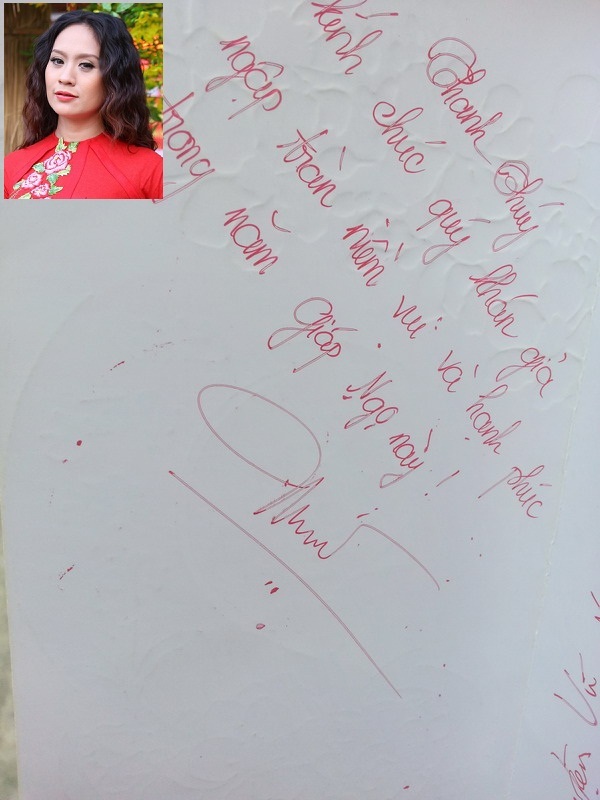 Thanh Thúy
kính chúc quý khán giả
ngập tràn niềm vui và hạnh phúc
trong năm Giáp Ngọ này!